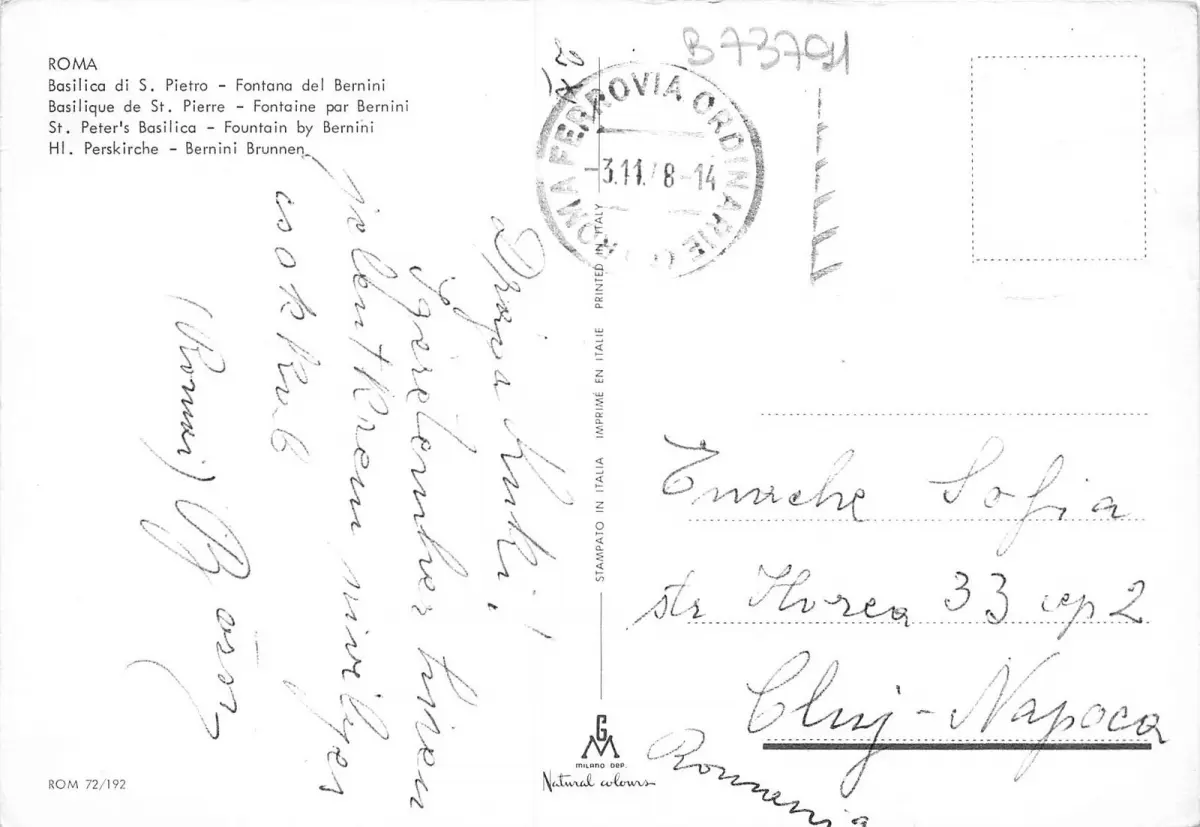 ROMA
Basilica di S. Pietro - Fontana del Bernini
Basilique de St. Pierre - Fontaine par Bernini
St. Peter's Basilica - Fountain by Bernini
Hl. Perskirche - Bernini Brunnen
B 73791
ROMA FERROVIA ORDINARIE
-3.11. 8-14
Drága
jelentkezem szívélyes
csokkal
(Romai)
STAMPATO IN ITALIA IMPRIMÉ EN ITALIE PRINTED IN ITALY
Enache Sofia
str Horea 33 ap 2
Cluj-Napoca
Romania
GM
MILANO DEP.
Natural colours
ROM 72/192